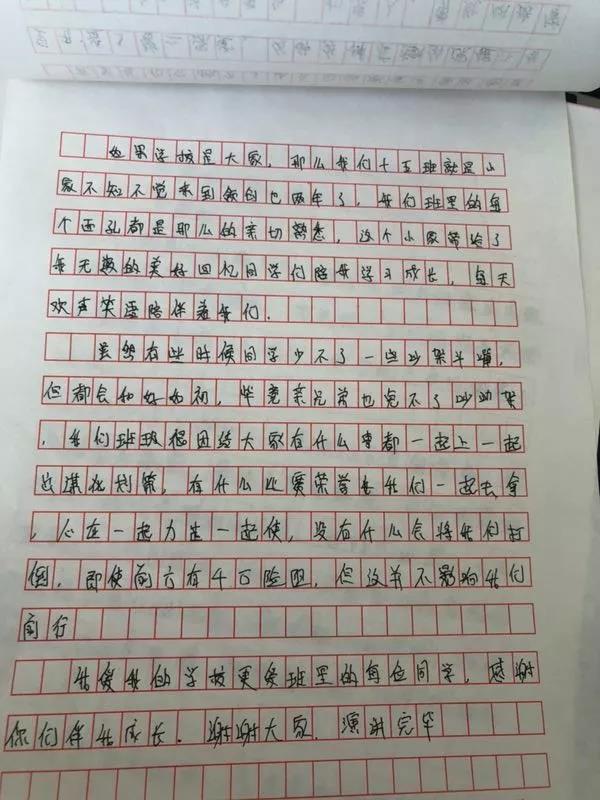 如果学校是大家，那么我们十五班就是小
家不知不觉来到领创也两年了，我们班里的每
个面孔都是那么的亲切熟悉，这个小家带给了
我无数的美好回忆同学们陪我学习成长，每天
欢声笑语陪伴着我们.
虽然有些时候同学少不了一些吵架斗嘴，
但都会和好如初，毕竟亲兄弟也免不了吵吵架
，我们班级很团结大家有什么事都一起上一起
出谋化划策，有什么比赛荣誉是我们一起去拿
，心在一起力生一起使，没有什么会将我们打
倒，即使前方有4万险阻，但这并不影响我们
前行
我爱我的学校更爱班里的每位同学，感谢
你们伴我成长. 谢谢大家. 演讲完毕